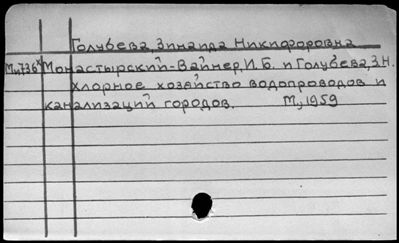 Голубева, Зинаида Никифоровна
М,736х Монастырский-Вайнер, И. Б. и Голубева, З.Н.
Хлорное хозяйство водопроводов и
канализаций городов. М, 1959